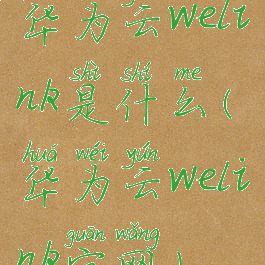 华为云weli
shì shí me
nk是什么(
huá wéi yún
华为云weli
guān wǎng
nk官网)